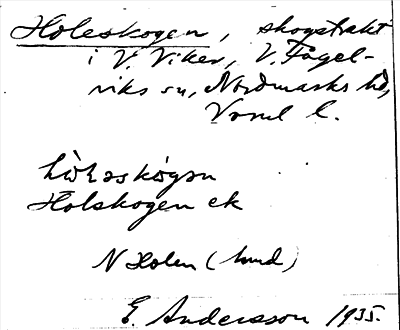 Holeskogen, skogstrakt
i V. Viker, V. Fågel-
viks sn, Nordmarks hd,
Vrml l.
hòɫəskógən
Holskogen ek
N Holen (hmd)
E. Andersson 1935.